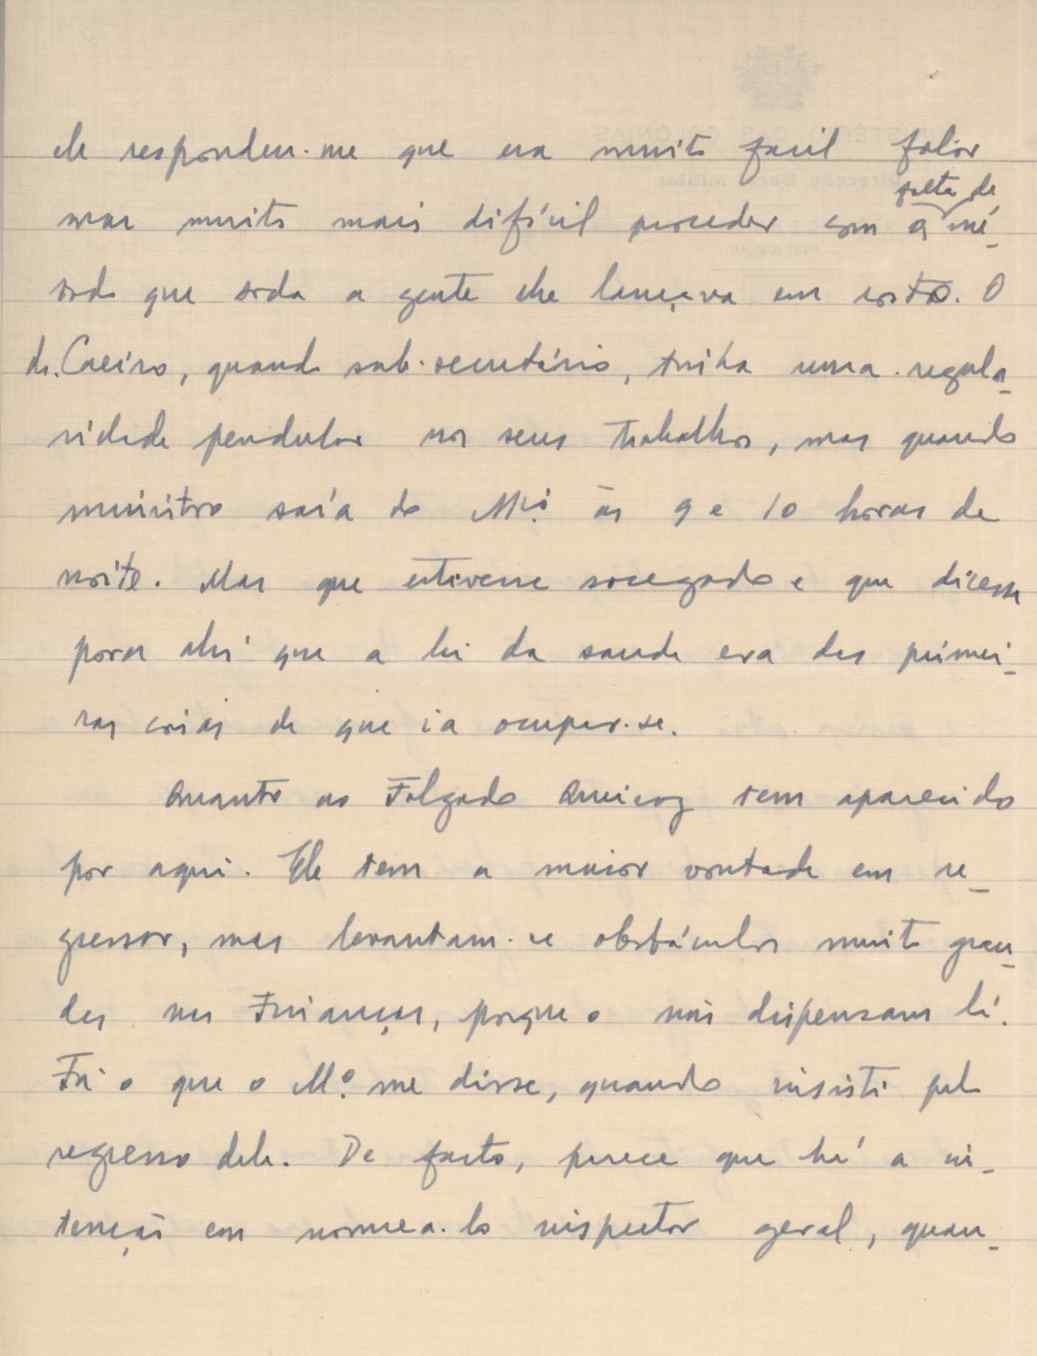 ele respondeu-me que era muito facil falar
mas muito mais difícil proceder com a falta de mé-
todo que toda a gente lhe lançava em rosto. O
dr. Caeiro, quando sub-secretário, tinha uma regula-
ridade pendular nos seus trabalhos, mas quando
ministro saía do Mi.º às 9 e 10 horas da
noite. Mas que estivesse socegado e que dicesse
para ahi que a lei da saude era das primei-
ras coisas de que ia ocupar-se.
Quanto ao Folgado tem aparecido
por aqui. Ele tem a maior vontade em re-
gressar, mas levantam-se obstáculos muito gran-
des nas Finanças, porque o não dispensam lá.
Foi o que o M.º me disse, quando insisti pelo
regresso dele. De facto, parece que há a in-
tenção em nomea-lo inspector geral, quan-